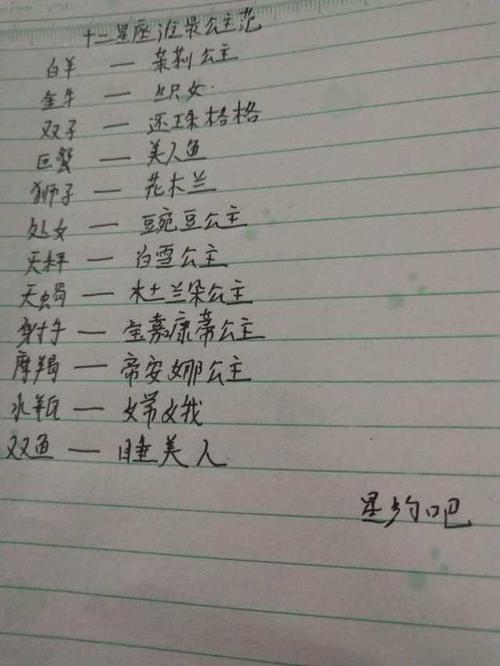 十二星座谁最公主范
白羊 — 茉莉公主
金牛 — 织女
双子 — 还珠格格
巨蟹 — 美人鱼
狮子 — 花木兰
处女 — 豌豆公主
天秤 — 白雪公主
天蝎 — 杜兰朵公主
射手 — 宝嘉康蒂公主
摩羯 — 帝安娜公主
水瓶 — 嫦娥
双鱼 — 睡美人
星灼吧